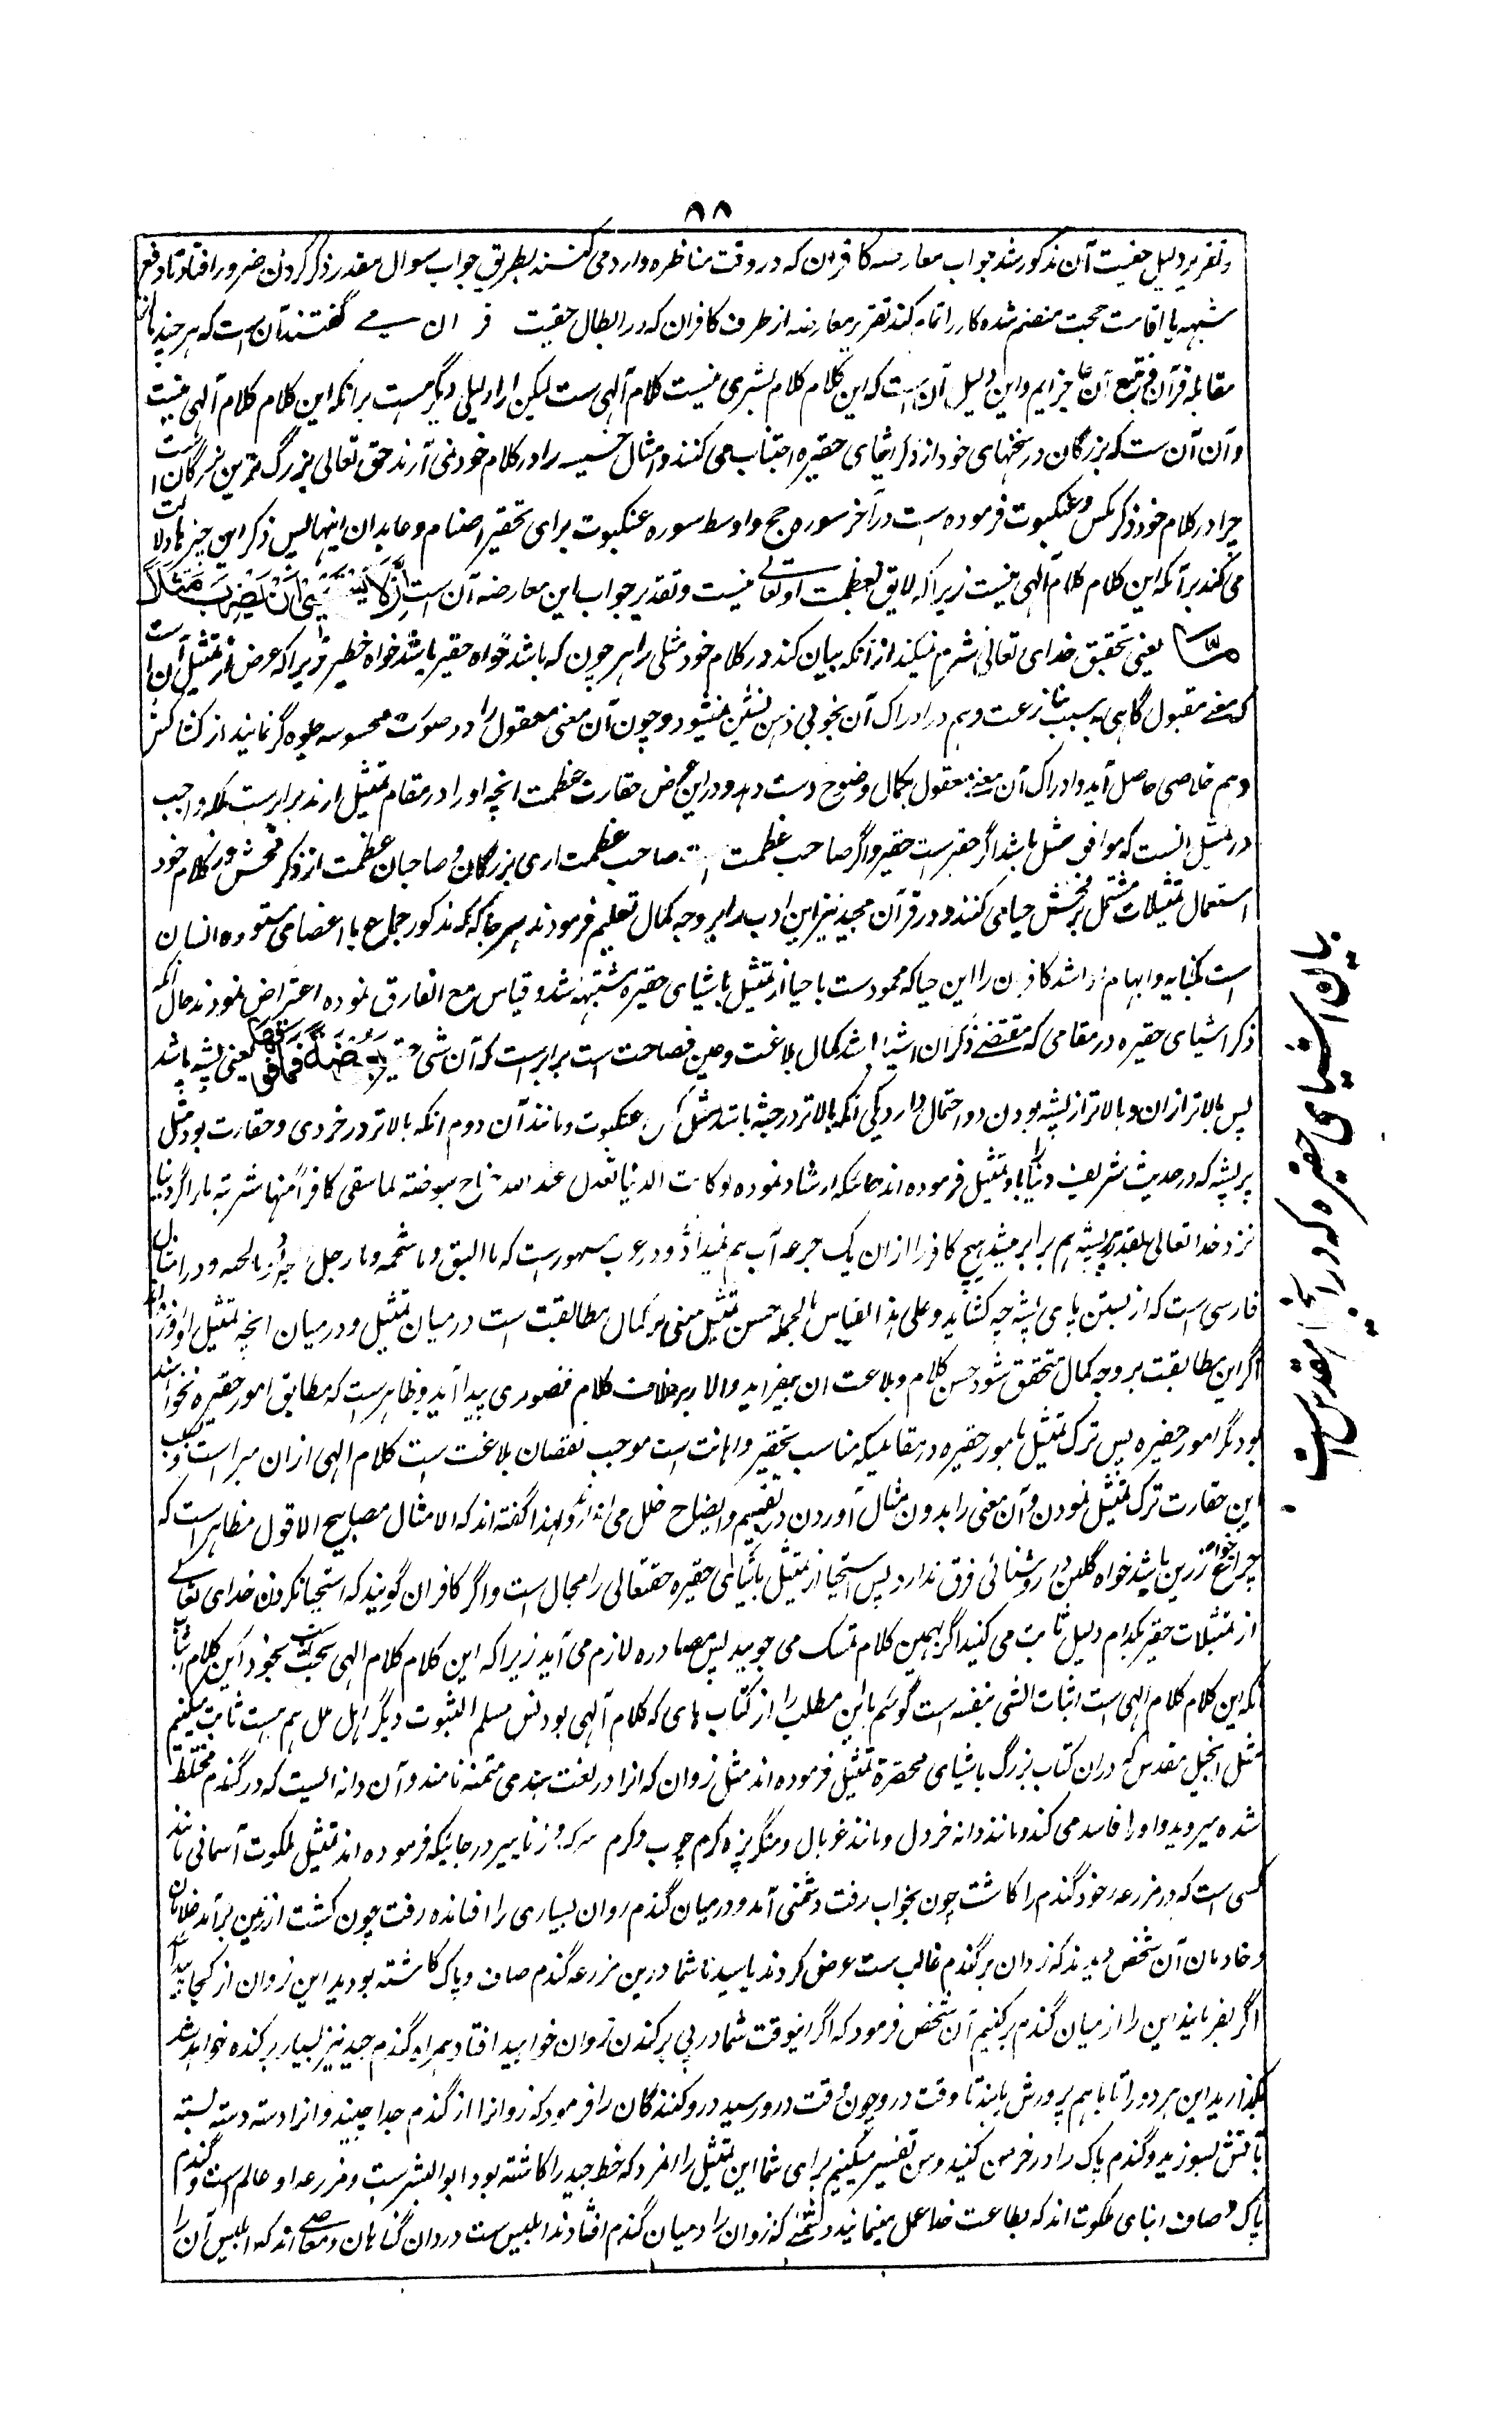 ۸۸
و تقریر دلیل حقیت آن مذکور شد جواب معارضه کافران که در وقت مناظره وارد می کنند بطریق جواب سوال مقدر ذکر کردن ضرور افتاد تا دفع
شبهه با اقامت حجت منضم شده کار را تمام کند تقریر معارضه از طرف کافران که در ابطال حقیت قرآن می گفتند آن ست که هر چند ما از
مقابله قرآن و تتبع آن عاجزایم و این دلیل آن ست که این کلام کلام بشری نیست کلام آلهی ست لیکن ما را دلیلی دیگر هست بر آنکه این کلام کلام آلهی نیست
و آن آن ست که بزرگان در سخنهای خود از ذکر اشیای حقیره اجتناب می کنند و امثال خسیسه را در کلام خود نمی آرند حق تعالی بزرگ ترین بزرگان است
چرا در کلام خود ذکر مگس و عنکبوت فرموده است در آخر سوره حج و اوسط سوره عنکبوت برای تحقیر اصنام و عابدان اینها پس ذکر این چیزها دلالت
می کند بر آنکه این کلام کلام آلهی نیست زیرا که لایق بعظمت او تعالی نیست و تقدیر جواب این معارضه آن است ان الله لا یستحیی ان یضرب مثلا
ما یعنی تحقیق خدای تعالی شرم نمیکند از آنکه بیان کند در کلام خود مثلی را هر چون که باشد خواه حقیر باشد خواه خطیر زیرا که غرض از تمثیل آن است
که معنی معقول گاهی به سبب منازعت وهم در ادراک آن بخوبی ذهن نشین نمیشود و چون آن معنی معقول را در صورت محسوسه جلوه گر نمایند از کشاکش
وهم خلاصی حاصل آید و ادراک آن معنی معقول بکمال وضوح دست دهد و در این غرض حقارت و عظمت آنچه او را در مقام تمثیل آرند برابر ست بلکه واجب
در تمثیل آنست که موافق ممثل باشد اگر حقیر ست حقیر و اگر صاحب عظمت است صاحب عظمت آری بزرگان و صاحبان عظمت از ذکر فحش در کلام خود
استعمال تمثیلات مشتمل بر فحش حیا می کنند و در قرآن مجید نیز این ادب را بر وجه کمال تعلیم فرمودند هر جا که مذکور جماع یا اعضای مستوره انسان
است بکنایه و ابهام ارشاد شد کافران را این حیا که محمود ست با حیا از تمثیل باشیای حقیره مشتبه شد و قیاس مع الفارق نموده اعتراض نمودند حال آنکه
ذکر اشیای حقیره در مقامی که مقتضی ذکر آن اشیا باشد کمال بلاغت و عین فصاحت است برابر است که آن شی حقیر بعوضة فما فوقها یعنی پشه باشد
پس بالاتر از ان و بالاتر از پشه بودن دو احتمال دارد یکی آنکه بالاتر در جثه باشد مثل مگس و عنکبوت و مانند آن دوم آنکه بالاتر در خردی و حقارت بود مثل
پر پشه که در حدیث شریف دنیا را باو تمثیل فرموده اند جائیکه ارشاد نموده لو کانت الدنیا تعدل عند الله جناح بعوضة لما سقی کافرا منها شربة ماء اگر دنیا
نزد خدا تعالی بقدر پر پشه هم برابر میشد هیچ کافر را از ان یک جرعه آب هم نمیداد و در عرب مشهور ست که و در امثال
فارسی است که از بستن پای پشه چه کشاید و علی هذا القیاس بالجمله حسن تمثیل مبنی بر کمال مطابقت است در میان تمثیل و در میان آنچه تمثیل او
اگر این مطابقت بر وجه کمال متحقق شود حسن کلام و بلاغت آن بیفزاید والا در بلاغت کلام قصوری پیدا آید و ظاهر ست که مطابق امور حقیره نخواهند
بود مگر امور حقیره پس ترک تمثیل بامور حقیره در مقامیکه مناسب تحقیر و اهانت است موجب نقصان بلاغت ست کلام الهی از ان مبراست و بسبب
این حقارت ترک تمثیل نمودن و آن معنی را بدون مثال آوردن در تفهیم و ایضاح خلل می اندازد و لهذا گفته اند که الامثال مصابیح الاقوال ظاهر است که
چراغ خواه زرین باشد خواه گلین در روشنائی فرق ندارد پس استحیا از تمثیل باشیای حقیره حقتعالی را محال است و اگر کافران گویند که استحیا نکردن خدای تعالی
از تمثیلات حقیر بکدام دلیل ثابت می کنید اگر بهمین کلام تمسک می جویید پس مصادره لازم می آید زیرا که این کلام کلام الهی بحث ست بخود این کلام اثبات
آنکه این کلام کلام الهی ست اثبات الشی بنفسه است گوئیم ما این مطلب را از کتاب های که کلام آلهی بودنش مسلم الثبوت دیگر اهل ملل هم هست ثابت میکنیم
مثل انجیل مقدس که دران کتاب بزرگ باشیای محتقره تمثیل فرموده اند مثل زوان که آنرا در لغت هندی متمنه نامند و آن دانه ایست که در گندم مختلط
شده میروید و او را فاسد می کند و مانند دانه خردل و مانند غربال و سنگریزه و کرم چوب و کرم سرکه و زنابیر در جائیکه فرموده اند تمثیل ملکوت آسمانی مانند
کسی است که در مزرعه خود گندم را کاشت چون بخواب رفت دشمنی آمد و در میان گندم زوان بسیاری را افشانده رفت چون کشت از زمین برآمد غلامان
و خادمان آن شخص دیدند که زوان بر گندم غالب ست عرض کردند یا سیدنا شما درین مزرعه گندم صاف و پاک کاشته بودید این زوان از کجا پیدا آمد
اگر بفرمایند این را از میان گندم برکنیم آن شخص فرمود که اگر اینوقت شما در پی برکندن زوان خواهید افتاد همراه گندم جید نیز بسیار برکنده خواهد شد
بگذارید این هر دو را تا با هم پرورش یابند تا وقت درو چون وقت درو رسید درو کنندگان را فرمود که زوانرا از گندم جدا چینند و آنرا دسته دسته بسته
بآتش بسوزید و گندم پاک را در خرمن کنید و من تفسیر میکنیم برای شما این تمثیل را آنمرد که جید را کاشته بود ابو البشر ست و مزرعه او عالم است و گندم
پاک و صاف ابنای ملکوت اند که بطاعت خدا عمل مینمایند و دشمنی که زوان را در میان گندم افشاند ابلیس ست و زوان گناهان و معاصی اند که ابلیس آن را
بیان اشیای حقیره که در انجیل مقدس است